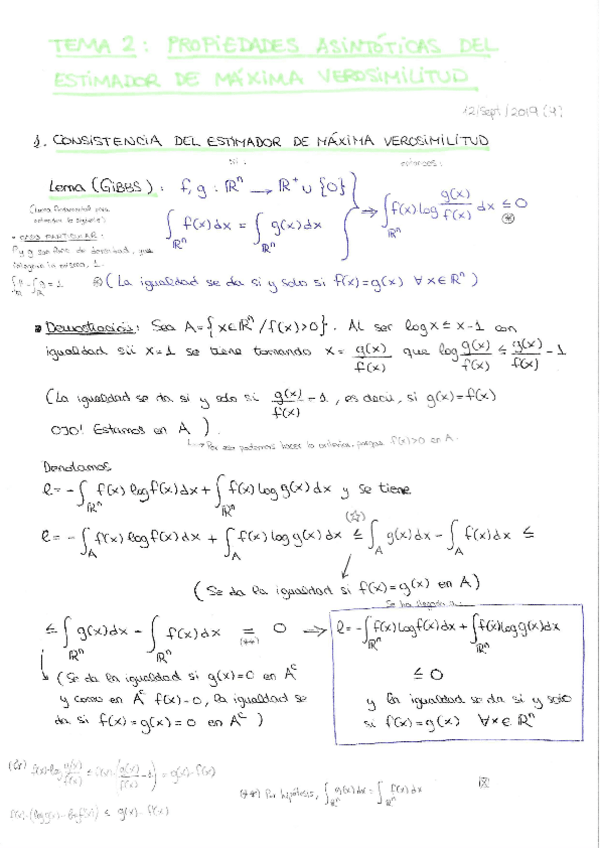 TEMA 2: PROPIEDADES ASINTÓTICAS DEL
ESTIMADOR DE MÁXIMA VEROSIMILITUD
12/Sept/2019 (4)
1. CONSISTENCIA DEL ESTIMADOR DE MÁXIMA VEROSIMILITUD
si: entonces:
Lema (GIBBS): f, g : ℝⁿ → ℝ⁺ ∪ {0}
∫_ℝⁿ f(x)dx = ∫_ℝⁿ g(x)dx ⇒ ∫_ℝⁿ f(x) log g(x)/f(x) dx ≤ 0 ⊛
(Lema fundamental para
entender lo siguiente)
• CASO PARTICULAR:
f y g son func. de densidad, que
integran lo mismo, 1.
∫f = ∫g = 1
⊛ (La igualdad se da si y solo si f(x)=g(x) ∀x∈ℝⁿ)
• Demostración: Sea A={x∈ℝⁿ/f(x)>0}. Al ser log x ≤ x-1 con
igualdad sii x=1 se tiene tomando x = g(x)/f(x) que log g(x)/f(x) ≤ g(x)/f(x) - 1
(La igualdad se da si y solo si g(x)/f(x) = 1, es decir, si g(x)=f(x)
OJO! Estamos en A).
↳ Por eso podemos hacer lo anterior, porque f(x)>0 en A.
Denotamos
l = -∫_ℝⁿ f(x) log f(x)dx + ∫_ℝⁿ f(x) log g(x) dx y se tiene
l = -∫_A f(x) log f(x)dx + ∫_A f(x) log g(x) dx ≤ (☆) ∫_A g(x)dx - ∫_A f(x)dx ≤
(Se da la igualdad si f(x)=g(x) en A)
≤ ∫_ℝⁿ g(x)dx - ∫_ℝⁿ f(x)dx = (**) 0 →
↳ (Se da la igualdad si g(x)=0 en Aᶜ
y como en Aᶜ f(x)=0, la igualdad se
da si f(x)=g(x)=0 en Aᶜ)
Se ha llegado a:
l = -∫_ℝⁿ f(x)log f(x)dx + ∫_ℝⁿ f(x)log g(x)dx
≤ 0
y la igualdad se da si y solo
si f(x)=g(x) ∀x∈ℝⁿ
(☆) f(x)·log g(x)/f(x) ≤ f(x)·(g(x)/f(x) - 1) = g(x)-f(x)
f(x)·(log g(x)-log f(x)) ≤ g(x)-f(x)
(**) Por hipótesis, ∫_ℝⁿ g(x)dx = ∫_ℝⁿ f(x)dx